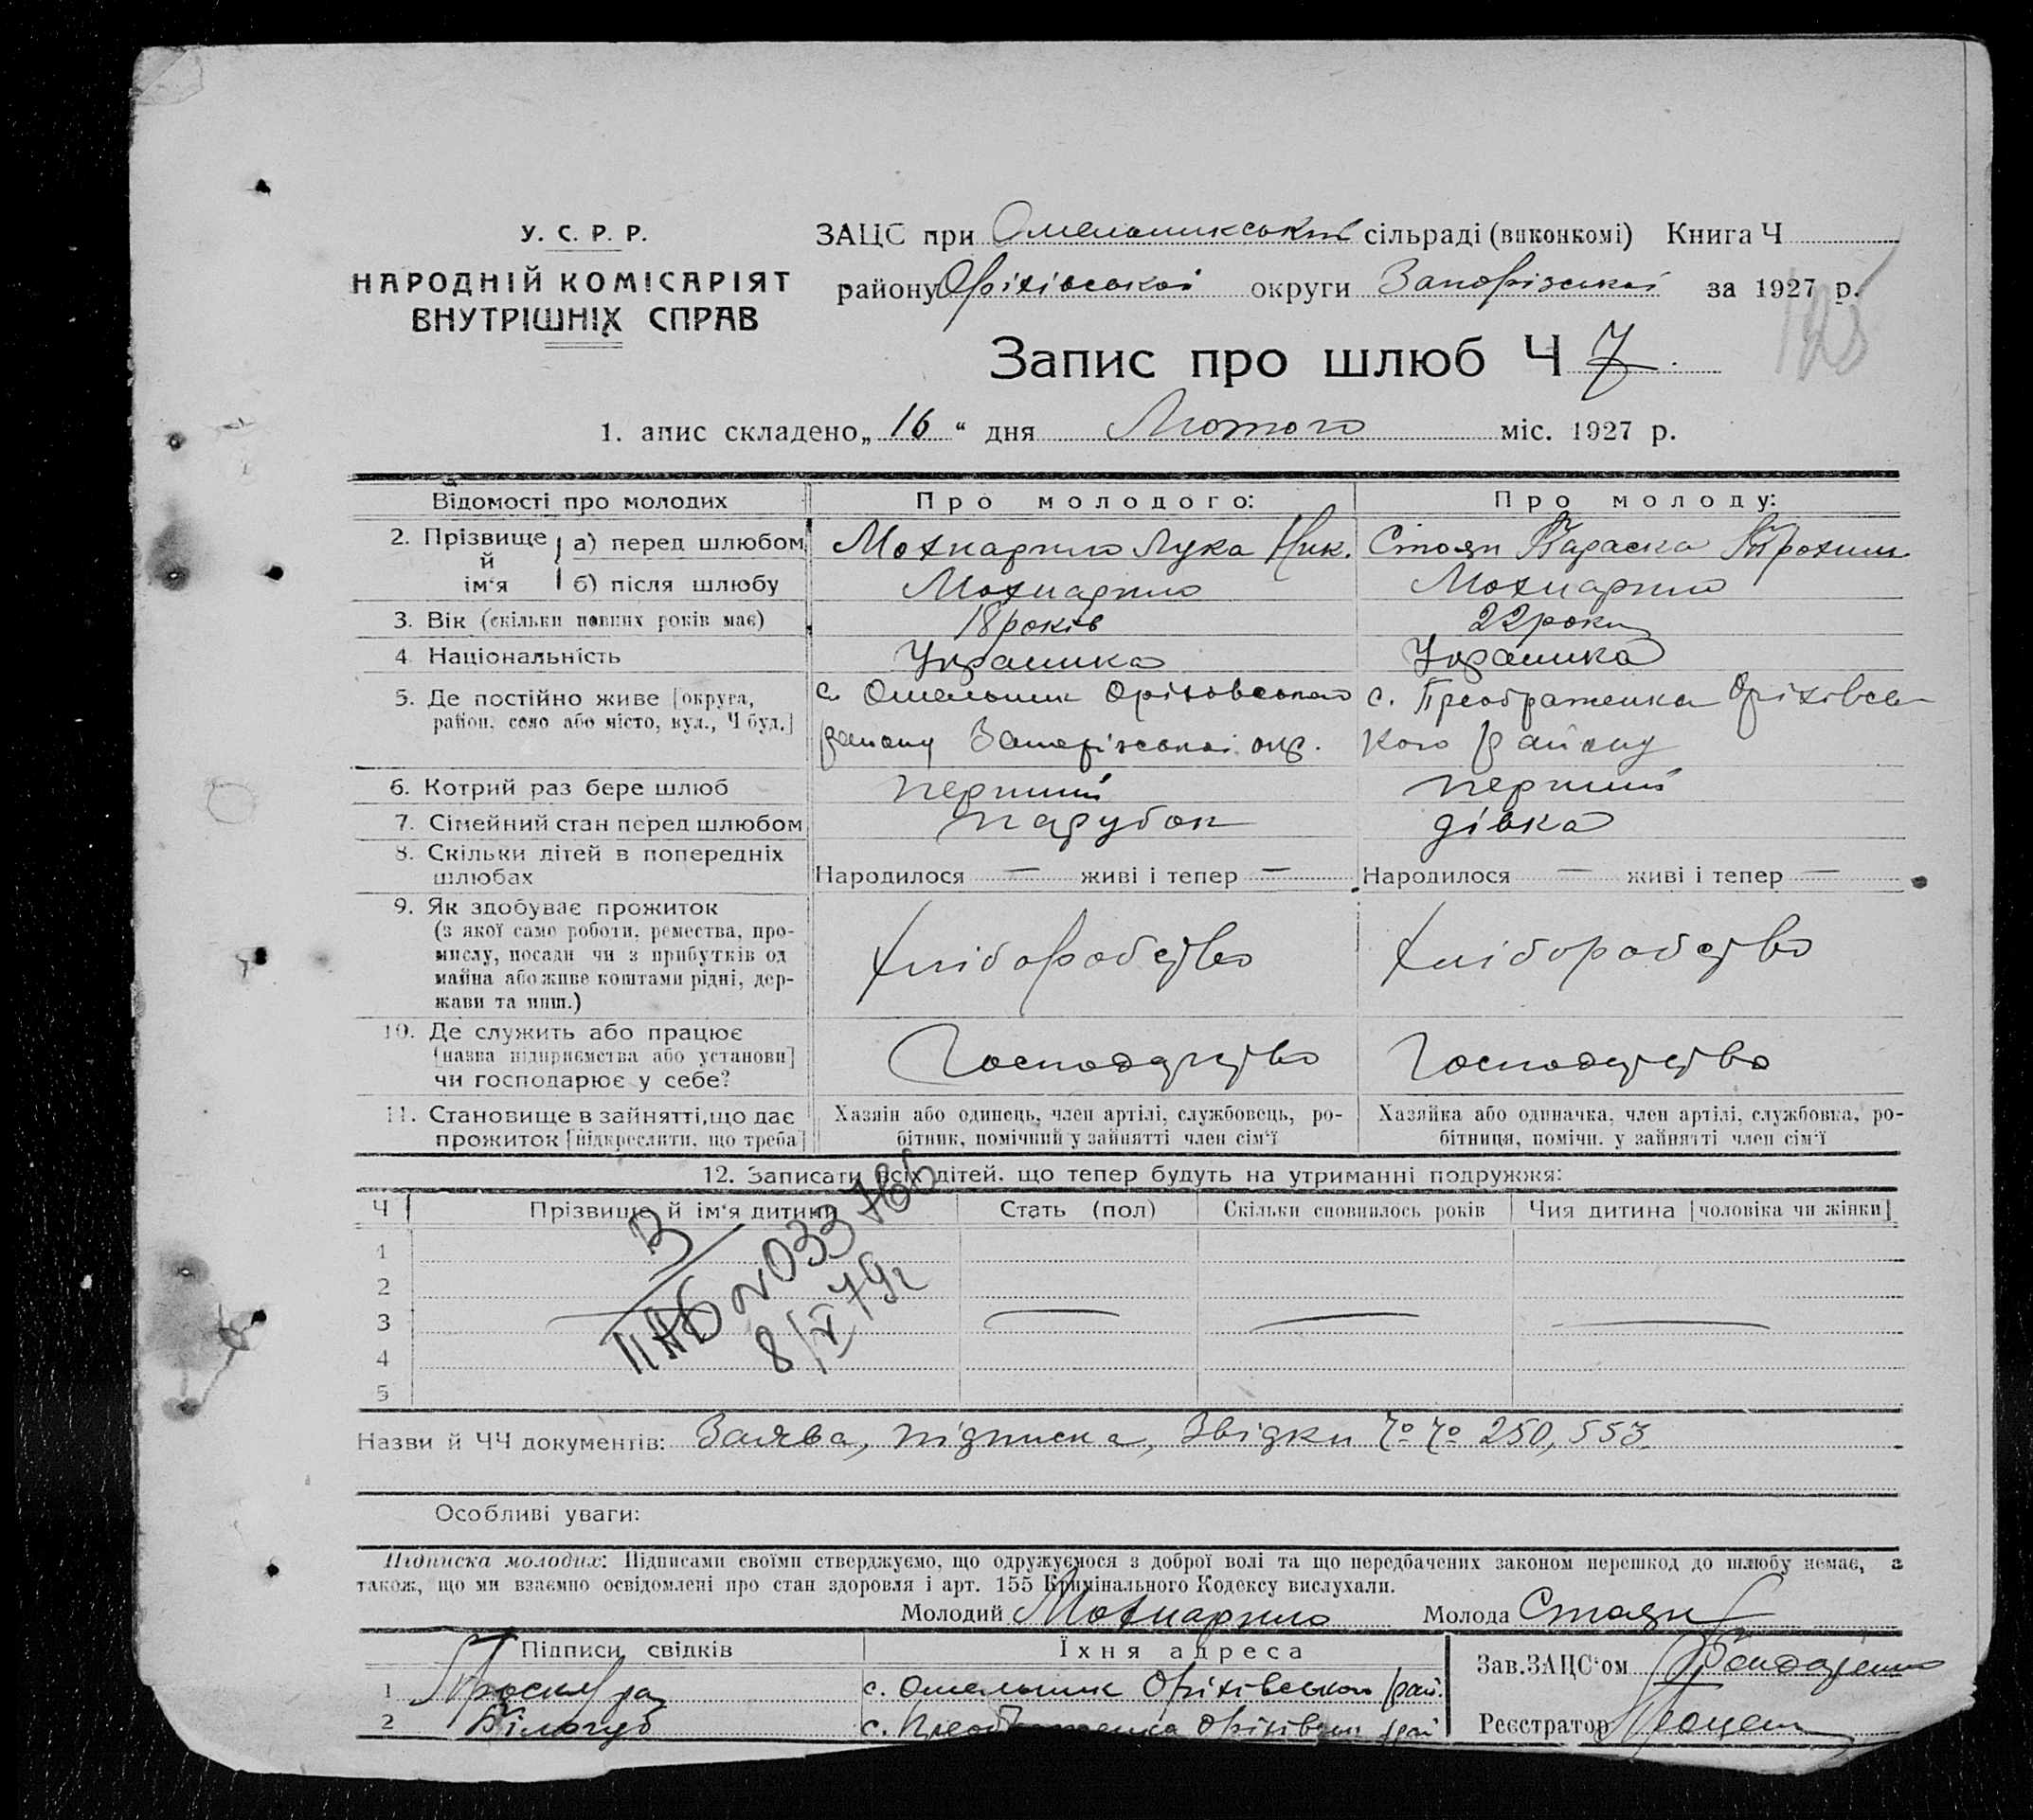 У. С. Р. Р.
НАРОДНІЙ КОМІСАРІЯТ
ВНУТРІШНІХ СПРАВ
ЗАЦС при Омельникській сільраді (виконкомі) Книга Ч
району Оріхівської округи Запорізької за 1927 р.
Запис про шлюб Ч 7
1. апис складено „16“ дня Лютого міс. 1927 р.
Відомості про молодих Про молодого: Про молоду:
2. Прізвище й ім'я а) перед шлюбом Мохнарило Лука Ник. Стоян Параска Трохим
б) після шлюбу Мохнарило Мохнарило
3. Вік (скільки повних років має) 18 років 22 роки
4. Національність Украинка Украинка
5. Де постійно живе [округа, район, село або місто, вул., Ч буд.] с. Омельник Оріховського с. Преображенка Оріхівсь-
району Запорізької окр. кого району
6. Котрий раз бере шлюб перший перший
7. Сімейний стан перед шлюбом парубок дівка
8. Скільки дітей в попередніх шлюбах Народилося — живі і тепер — Народилося — живі і тепер —
9. Як здобуває прожиток
(з якої саме роботи, ремества, про-
мислу, посади чи з прибутків од
майна або живе коштами рідні, дер-
жави та инш.) Хліборобство Хліборобство
10. Де служить або працює
[назва підприємства або установи]
чи господарює у себе? Господарство Господарство
11. Становище в зайнятті, що дає
прожиток [підкреслити, що треба]
Хазяїн або одинець, член артілі, службовець, ро-
бітник, помічний у зайнятті член сім'ї
Хазяйка або одиначка, член артілі, службовка, ро-
бітниця, помічн. у зайнятті член сім'ї
12. Записати всіх дітей, що тепер будуть на утриманні подружжя:
Ч Прізвище й ім'я дитини Стать (пол) Скільки сповнилось років Чия дитина [чоловіка чи жінки]
1
2
3
4
5
N 033766
8/V 79г
Назви й ЧЧ документів: Заява, підписка, Звідки №№ 250, 553.
Особливі уваги:
Підписка молодих: Підписами своїми стверджуємо, що одружуємося з доброї волі та що передбачених законом перешкод до шлюбу немає, а
також, що ми взаємно освідомлені про стан здоровля і арт. 155 Кримінального Кодексу вислухали.
Молодий Мохнарило Молода Стоян
Підписи свідків Їхня адреса
Зав. ЗАЦС'ом Бондаренко
1 Проскура с. Омельник Оріхівського рай.
2 Білогуб с. Преображенка Оріхівськ рай
Реєстратор